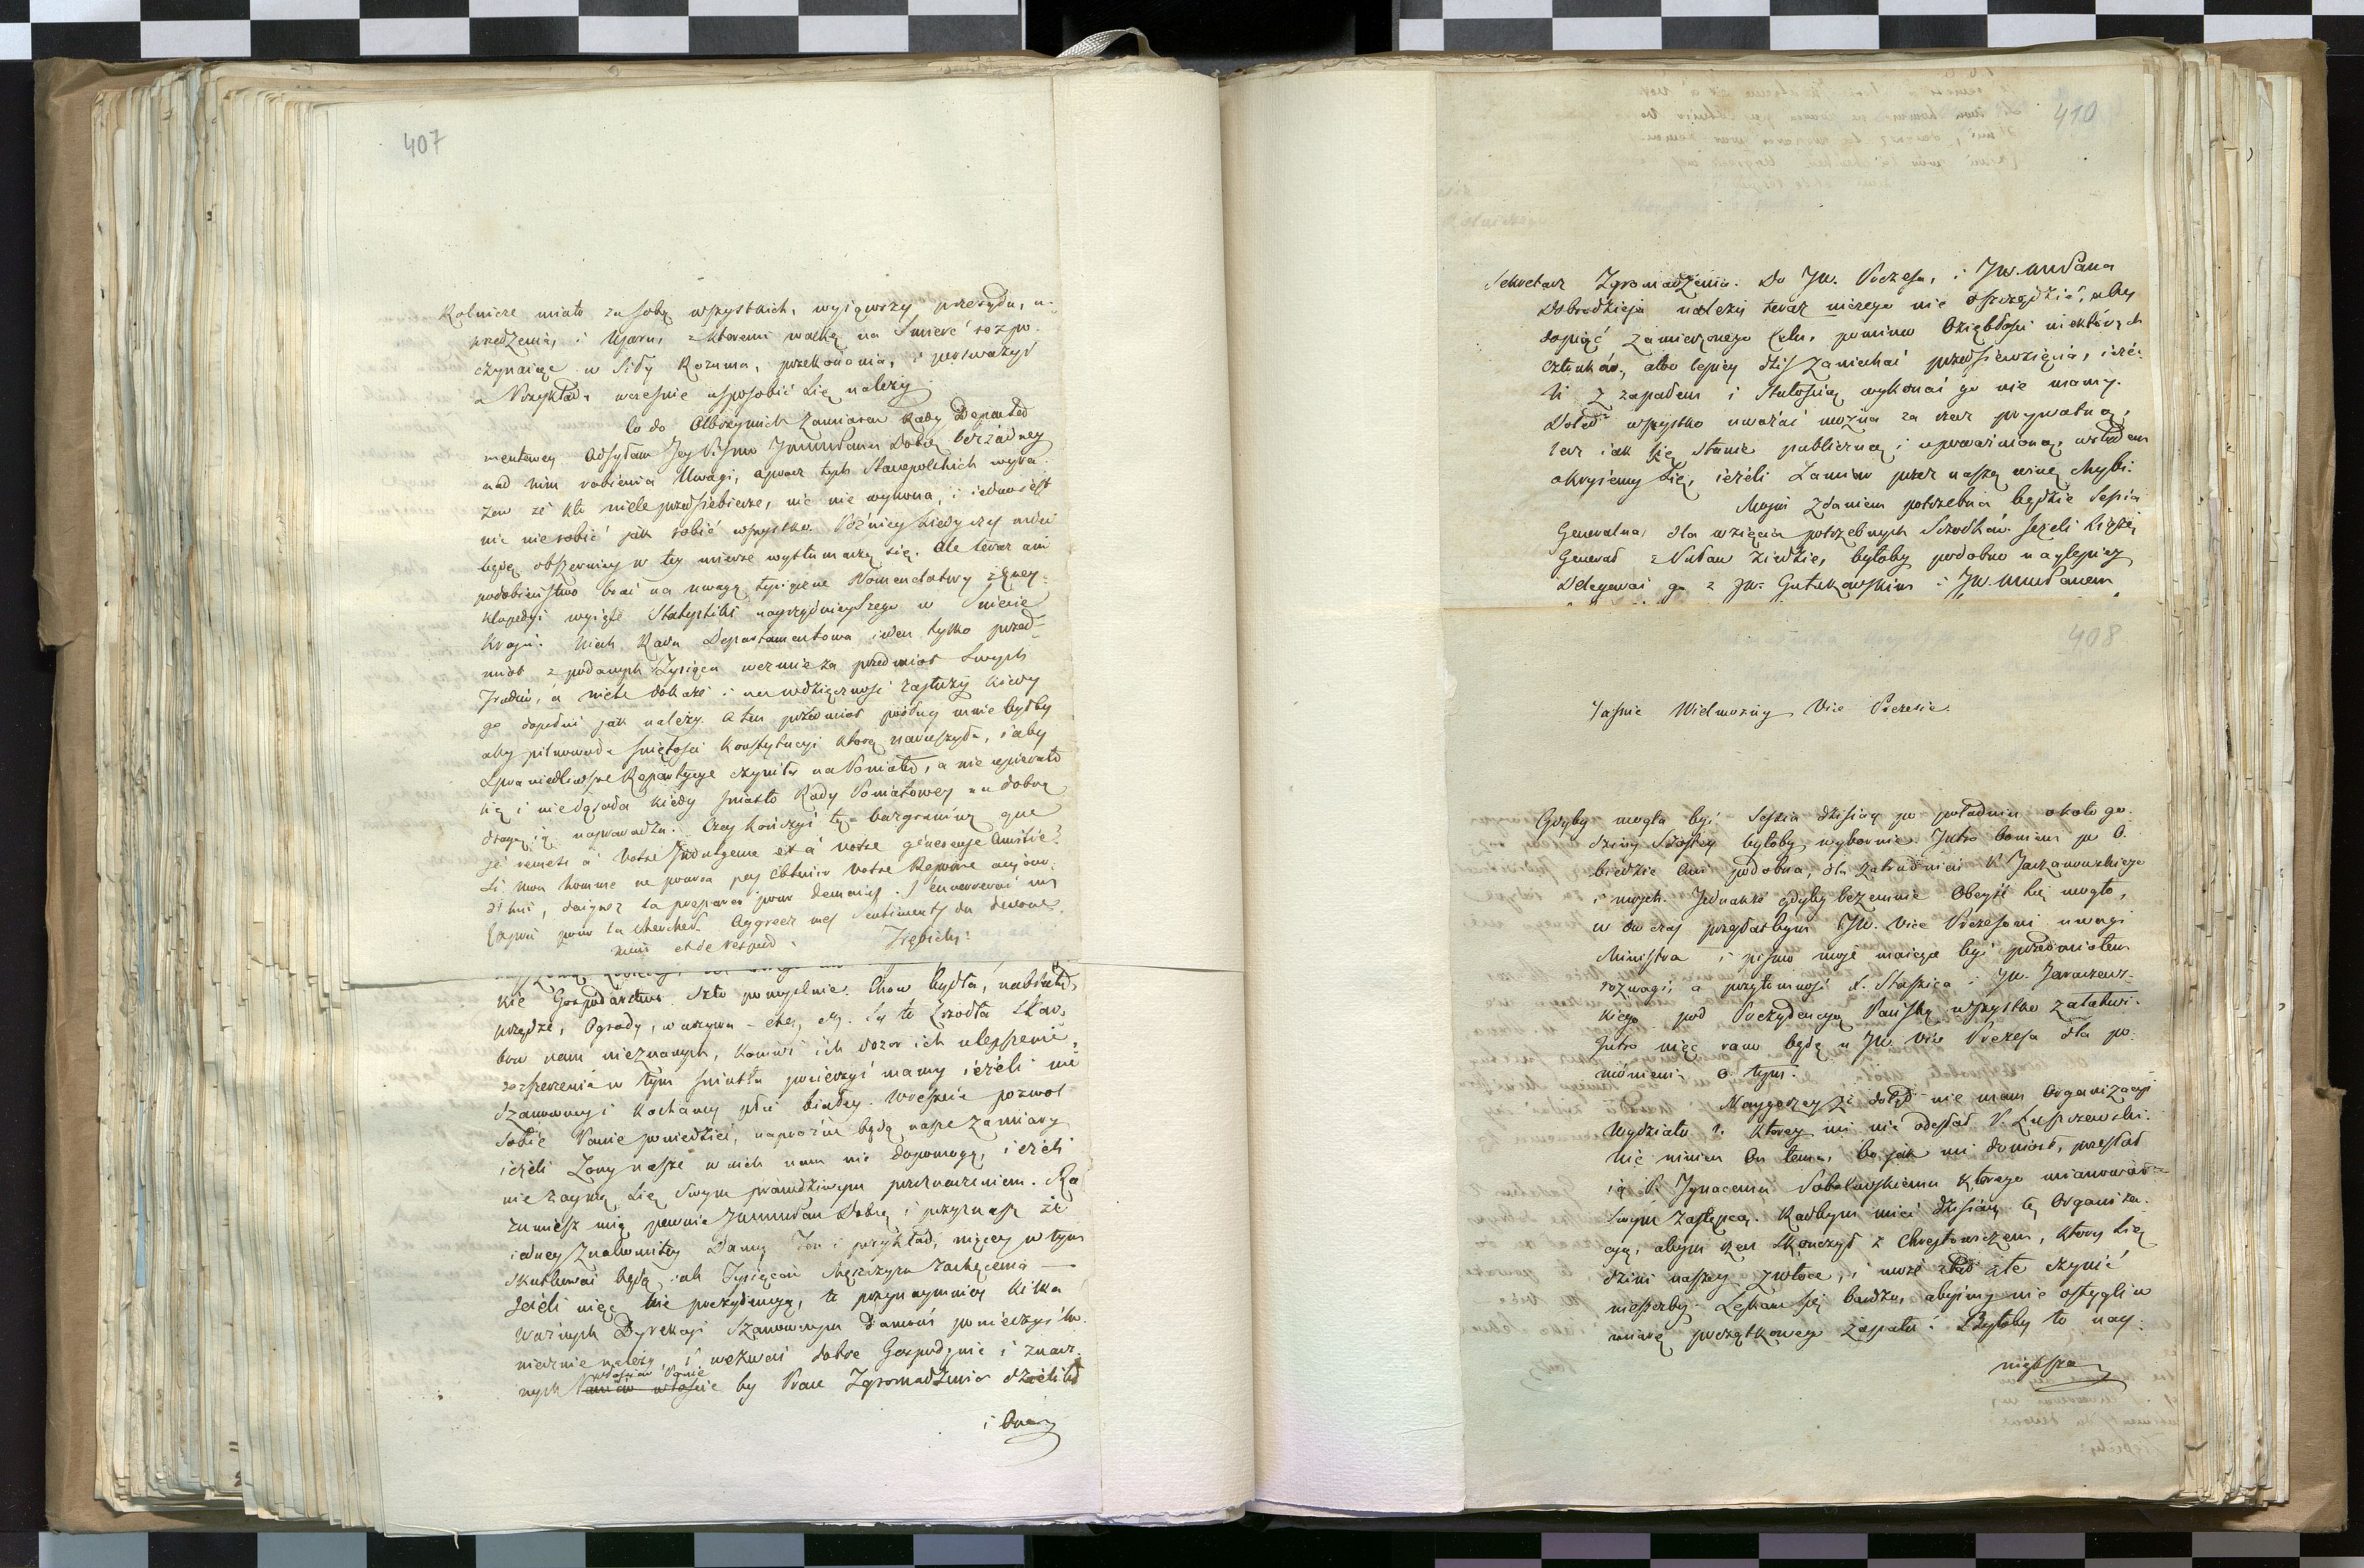 407
Rolnicze miało za sobą wszystkich, wyiąwszy przesądu, u-
przedzenia, i Uporu, z ktoremi walkę na Smierć rozpo-
czynaiąc w Siły Rozumu, przekonania, i perswazyi
a Przykładu wcześnie usposobić Się należy
Co do Olbrzymich Zamiarów Rady Departa-
mentowey. Odsyłam Jey Pismo JWmuPanu Dobr. bez żadney
nad nim robienia Uwagi, oprocz tych Staropolskich wyra-
zow że kto wiele przedsiebierze, nic nie wykona, i iedno iest
nic nie robić jak robić wszystko. Pożniey kiedy czas mieć
będę obszerniey w tey mierze wytłumaczę się. Ale teraz ani
podobieństwo brać na uwagę tysiączne Nomenclatury z Ency-
klopedyi wyięte Statystiki nayrządnieyszego w Swiecie
Kraju. Niech Rada Departamentowa ieden tylko przed-
miot z podanych Tysiąca wezmie za przedmiot Swych
Trudów, a wiele dokaże i na wdzięczność zasłuży kiedy
go dopełni jak należy. A ten przedmiot podług mnie byłby
aby pilnowała Swiętości Konstytucyi ktorą naruszyła, i aby
Sprawiedliwsze Repartycye czyniła na Powiaty, a nie upierała
się i nie dąsała kiedy światło Rady Powiatowey na dobrą
drogę ią naprowadza. Czas kończyć tę bazgraninę que
je remets a Votre Indulgence et a votre génereuse Amitié.
Si mon homme ne pourra pas obtenir Votre Reponse aujour-
d'hui, daignez la preparer pour demain. J'enverrai un
Exprès pour la chercher. Aggreez mes Sentiments du devoue-
ment et de respect.
kie Gospodarstwo Szło pomyslnie. Chow bydła, nabiały,
przędze, Ogrody, warzywa - etc, etc. Są to Zrzodła Skar-
bow nam nieznanych, komuż ich dozor ich ulepszenie,
rozszerzenie w tym Swiatła powierzyć mamy ieżeli nie
Szanowney i Kochaney płci białey. Wreszcie pozwol
Sobie Panie powiedzieć, naprożne będą nasze Zamiary
ieżeli Zony nasze w nich nam nie dopomogą, ieżeli
nie zaymą Się Swym prawdziwym przeznaczeniem. Ro-
zumiesz mię pewnie JWmuPan Dobr. i przyznasz że
iedney Znakomitey Damy Ton i przykład, więcey w tym
skutkować będą iak Tysiączne Mężczyzn zachęcenia —
Jeżeli więc nie prezydencyą, to przynaymniey kilka
Ważnych Dyrekcyi Szanownym Damom powierzyć ko-
niecznie należy, i wezwać dobre Gospodynie i znaw-
by Prace Zgromadzenia dzieliły
i Ona
410
Sekretarz Zgromadzenia. Do JW. Prezesa, i JW. WmPana
Dobrodzieja należy teraz niczego nie oszczędzić, aby
dopiąć zamierzonego Celu, pomimo Oziębłości niektórych
Członków, albo lepiey dziś zaniechać przedsiewzięcia, ieże-
li z zapałem i Stałością wykonać go nie mamy.
Dotąd wszystko uważać można za rzecz prywatną,
lecz iak się stanie publiczną i upoważnioną, wstydem
okryiemy Się, ieżeli Zamiar przez naszą winę chybi.
Moim Zdaniem potrzebna będzie Sessia
Generalna, dla wzięcia potrzebnych Srzodków. Jeżeli Xiążę
Generał z Puław ziedzie, byłoby podobno naylepiey
Delegować go z JW. Gutakowskim i JW. WmPanem
408
Jaśnie Wielmożny Vice Prezesie.
Gdyby mogła być Sessia dzisiay po południu około go-
dziny Szostey byłoby wybornie. Jutro bowiem po O-
biedzie Ani podobna, dla zatrudnień P. Jaraczewskiego
i moich. Jednakże gdyby bezemnie Obeyść Się mogło,
w ow czas przysłałbym JW. Vice Prezesowi uwagi
Ministra i pismo moje maiące być przedmiotem
rozwagi, a przytomność X. Staszica i JW. Jaraczews-
kiego pod Prezydencyą Pańską wszystko załatwi.
Jutro więc rano będę u JW. Vice Prezesa dla po-
mówienia o tym.
Naygorzey że dotąd nie mam Organizacyi
Wydziału 1. ktorey mi nie odesłał P. Łuszczewski.
nie winien On temu, bo jak mi doniosł, przesłał
ią P. Ignacemu Sobolewskiemu którego mianował
Swym Zastępcą. Radbym mieć dzisiay tę Organiza-
cyą, abym rzecz Skonczył z Chreptowiczem, ktory Się
dziwi naszey zwłoce, i może złe czynić
Lękam Się bardzo, abyśmy nie ostygli w
miarę początkowego zapału! Byłoby to nay-
większą